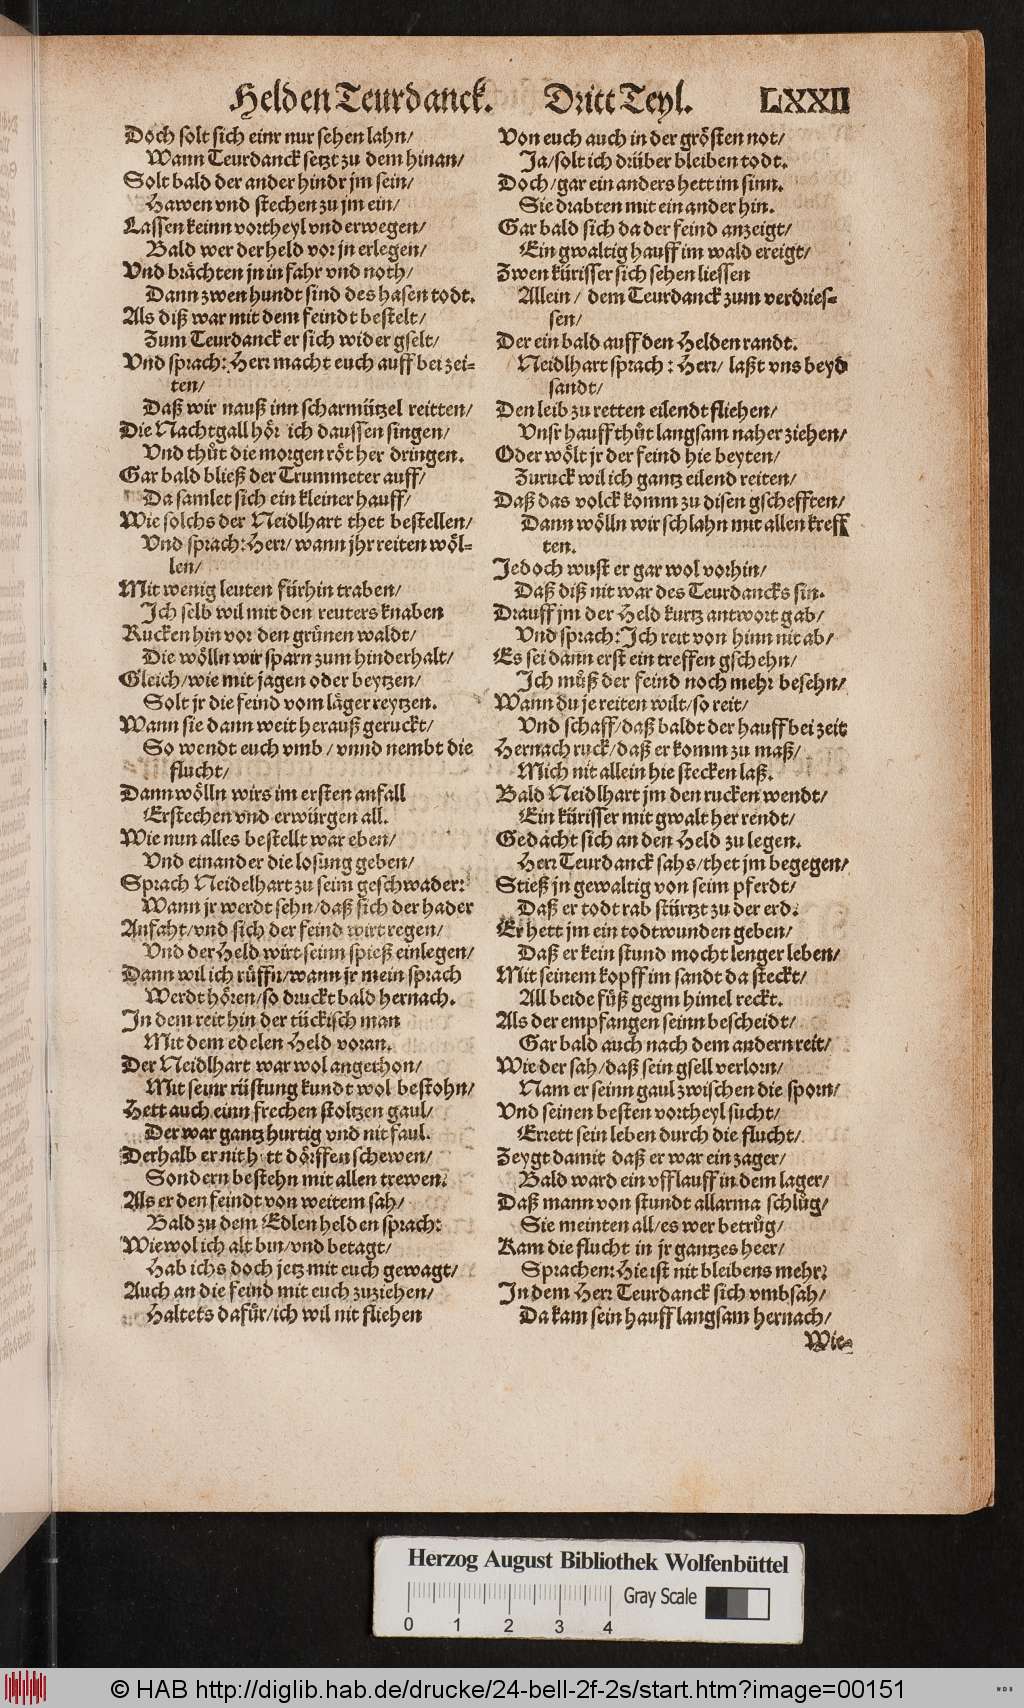 Helden Teurdanck. Dritt Teyl. LXXII
Doch solt sich einr nur sehen lahn/
Wann Teurdanck setzt zu dem hinan/
Solt bald der ander hindr jm sein/
Hawen vnd stechen zu jm ein/
Lassen keinn vortheyl vnderwegen/
Bald wer der held vor jn erlegen/
Vnd brächten jn in fahr vnd noth/
Dann zwen hundt sind des hasen todt.
Als diß war mit dem feindt bestelt/
Zum Teurdanck er sich wider gselt/
Vnd sprach: Herr macht euch auff bei zei-
ten/
Daß wir nauß inn scharmützel reitten/
Die Nachtgall hör ich daussen singen/
Vnd thůt die morgenröt her dringen.
Gar bald bließ der Trummeter auff/
Da samlet sich ein kleiner hauff/
Wie solchs der Neidlhart thet bestellen/
Vnd sprach: Herr/ wann jhr reiten wöl-
len/
Mit wenig leuten fürhin traben/
Ich selb wil mit den reuters knaben
Rucken hin vor den grünen waldt/
Die wölln wir sparn zum hinderhalt/
Gleich/ wie mit jagen oder beytzen/
Solt jr die feind vom läger reytzen.
Wann sie dann weit herauß geruckt/
So wendt euch vmb/ vnnd nembt die
flucht/
Dann wölln wirs im ersten anfall
Erstechen vnd erwürgen all.
Wie nun alles bestellt war eben/
Vnd einander die losung geben/
Sprach Neidelhart zu seim geschwader:
Wann jr werdt sehn/ daß sich der hader
Anfaht/ vnd sich der feind wirt regen/
Vnd der Held wirt seinn spieß einlegen/
Dann wil ich rüffn/ wann jr mein sprach
Werdt hören/ so druckt bald hernach.
In dem reit hin der tückisch man
Mit dem edelen Held voran.
Der Neidlhart war wol angethon/
Mit seinr rüstung kundt wol bestohn/
Hett auch einn frechen stoltzen gaul/
Der war gantz hurtig vnd nit faul.
Derhalb er nit hett dörffen schewen/
Sondern bestehn mit allen trewen.
Als er den feindt von weitem sah/
Bald zu dem Edlen helden sprach:
Wiewol ich alt bin/ vnd betagt/
Hab ichs doch jetz mit euch gewagt/
Auch an die feind mit euch zuziehen/
Haltets dafür/ ich wil nit fliehen
Von euch auch in der grösten not/
Ja/ solt ich drüber bleiben todt.
Doch/ gar ein anders hett im sinn.
Sie drabten mit ein ander hin.
Gar bald sich da der feind anzeigt/
Ein gwaltig hauff im wald ereigt/
Zwen kürisser sich sehen liessen
Allein/ dem Teurdanck zum verdries-
sen/
Der ein bald auff den Helden randt.
Neidlhart sprach: Herr/ laßt vns beyd
sandt/
Den leib zu retten eilendt fliehen/
Vnsr hauff thůt langsam naher ziehen/
Oder wölt jr der feind hie beyten/
Zuruck wil ich gantz eilend reiten/
Daß das volck komm zu disen gschefften/
Dann wölln wir schlahn mit allen kreff
ten.
Jedoch wust er gar wol vorhin/
Daß diß nit war des Teurdancks sin.
Drauff jm der Held kurtz antwort gab/
Vnd sprach: Ich reit von hinn nit ab/
Es sei dann erst ein treffen gschehn/
Ich můß der feind noch mehr besehn/
Wann du je reiten wilt/ so reit/
Vnd schaff/ daß baldt der hauff bei zeit
Hernach ruck/ daß er komm zu maß/
Mich nit allein hie stecken laß.
Bald Neidlhart jm den rucken wendt/
Ein kürisser mit gwalt her rendt/
Gedacht sich an den Held zu legen.
Herr Teurdanck sahs/ thet jm begegen/
Stieß jn gewaltig von seim pferdt/
Daß er todt rab stürtzt zu der erd.
Er hett jm ein todtwunden geben/
Daß er kein stund mocht lenger leben/
Mit seinem kopff im sandt da steckt/
All beide füß gegm himel reckt.
Als der empfangen seinn bescheidt/
Gar bald auch nach dem andern reit/
Wie der sah/ daß sein gsell verlorn/
Nam er seinn gaul zwischen die sporn/
Vnd seinen besten vortheyl sucht/
Errett sein leben durch die flucht/
Zeygt damit daß er war ein zager/
Bald ward ein vfflauff in dem lager/
Daß mann von stundt allarma schlůg/
Sie meinten all/ es wer betrůg/
Kam die flucht in jr gantzes heer/
Sprachen: Hie ist nit bleibens mehr.
In dem Herr Teurdanck sich vmbsah/
Da kam sein hauff langsam hernach/
Wie-
Herzog August Bibliothek Wolfenbüttel
Gray Scale
0 1 2 3 4
© HAB http://diglib.hab.de/drucke/24-bell-2f-2s/start.htm?image=00151